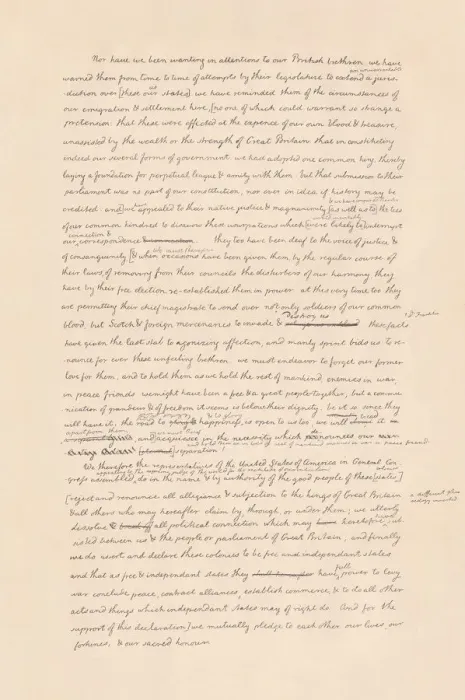 Nor have we been wanting in attentions to our British brethren. we have
warned them from time to time of attempts by their legislature to extend a juris-
an unwarrantable
-diction over [these our states] we have reminded them of the circumstances of
us
our emigration & settlement here, [no one of which could warrant so strange a
pretension: that these were effected at the expence of our own blood & treasure,
unassisted by the wealth or the strength of Great Britain: that in constituting
indeed our several forms of government, we had adopted one common king, thereby
laying a foundation for perpetual league & amity with them: but that submission to their
parliament was no part of our constitution, nor ever in idea if history may be
credited: and] we appealed to their native justice & magnanimity [as well as to] the ties
of our common kindred to disavow these usurpations which [were likely to] interrupt
connection &
our correspondence they too have been deaf to the voice of justice &
of consanguinity, [& when occasions have been given them, by the regular course of
their laws, of removing from their councils the disturbers of our harmony they
have by their free election re-established them in power. at this very time too they
are permitting their chief magistrate to send over not only soldiers of our common
blood, but Scotch & foreign mercenaries to invade & these facts
destroy us
Dr. Franklin
have given the last stab to agonizing affection, and manly spirit bids us to re-
nounce for ever these unfeeling brethren. we must endeavor to forget our former
love for them, and to hold them as we hold the rest of mankind, enemies in war,
in peace friends. we might have been a free & a great people together; but a commu-
nication of grandeur & of freedom it seems is below their dignity. be it so, since they
will have it: the road to happiness is open to us too; we will it
apart from them
and] acquiesce in the necessity which denounces our
separation!
We therefore the representatives of the United States of America in General Con-
-gress assembled, do in the name & by authority of the good people of these [states]
[reject and renounce all allegiance & subjection to the kings of Great Britain
& all others who may hereafter claim by, through, or under them; we utterly
dissolve & all political connection which may have
sisted between us & the people or parliament of Great Britain; and finally
we do assert and declare these colonies to be free and independant states
and that as free & independant states they have power to levy
full
war conclude peace, contract alliances, establish commerce, & to do all other
acts and things which independant states may of right do. And for the
support of this declaration] we mutually pledge to each other our lives, our
fortunes, & our sacred honour.